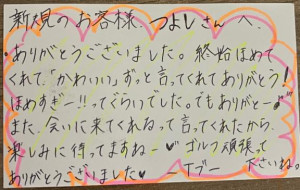 新規のお客様、つよしさんへ、
・ありがとうございました。終始ほめて
くれて、「かわいい」ずっと言ってくれてありがとう!
ほめすぎー!!ってぐらいでした。でもありがとー
また、会いに来てくれるって言ってくれたから、
楽しみに待ってますねー♥ ゴルフ頑張って
ありがとうございました♥ ーTブー 下さいね。